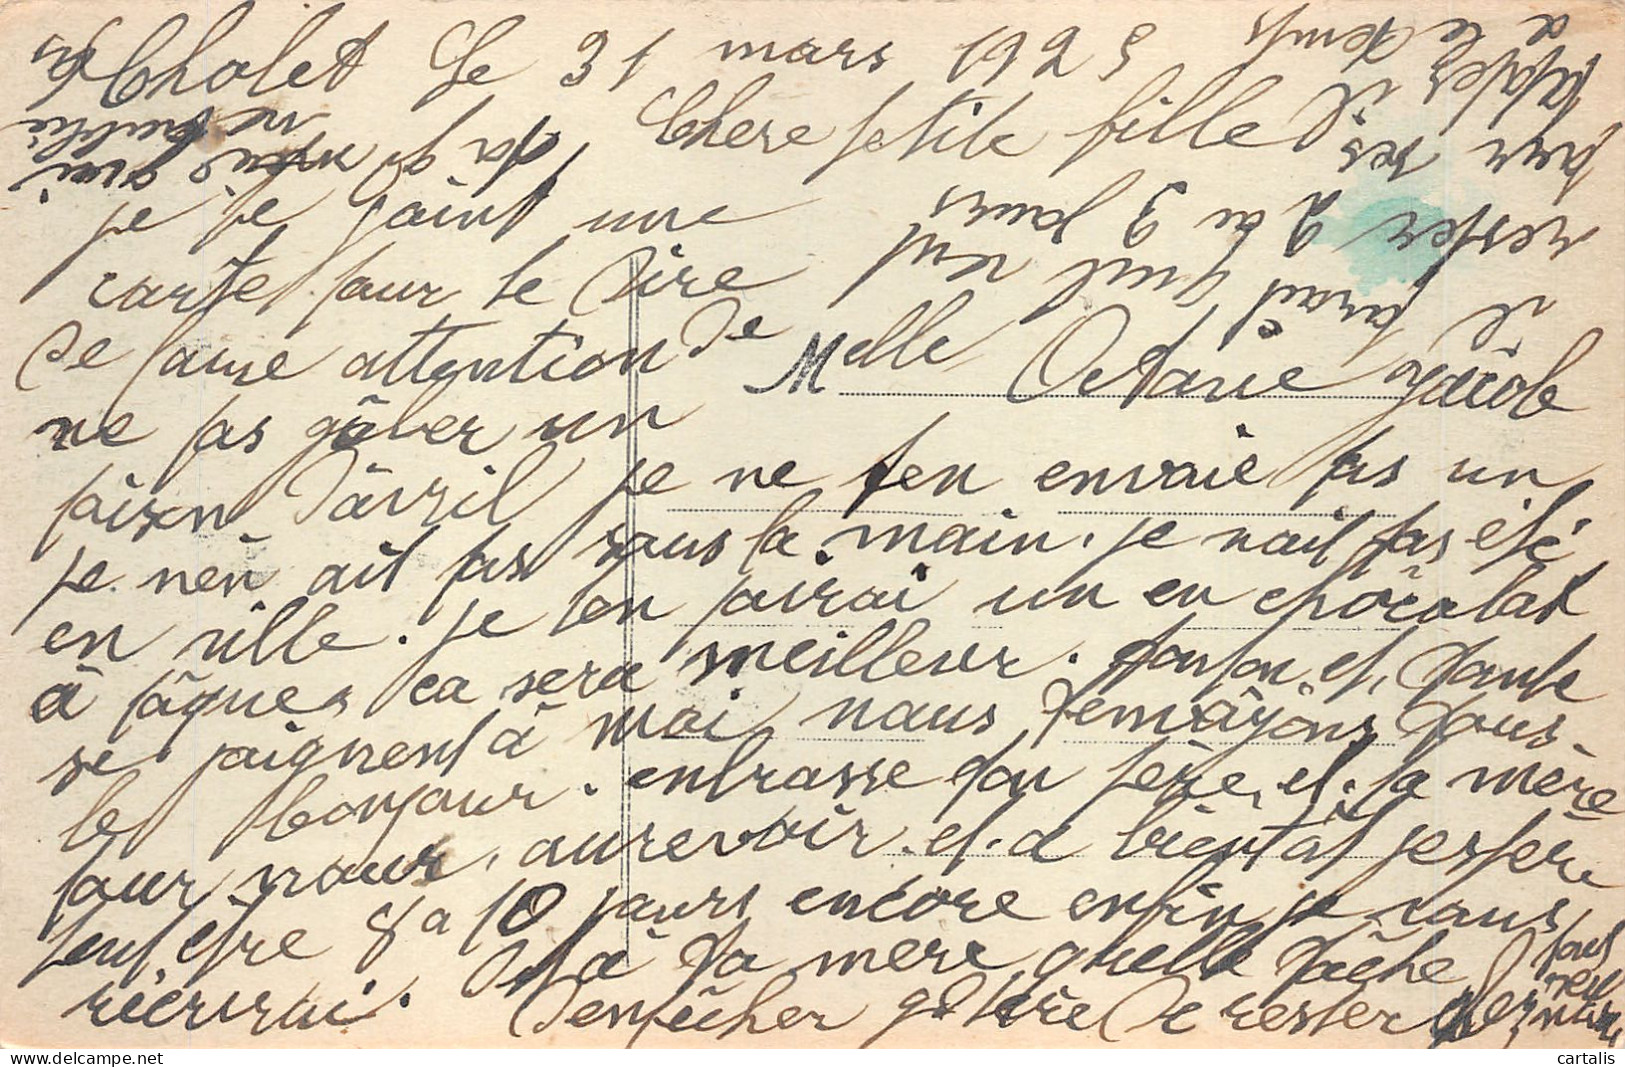 Cholet Le 31 mars 1925
Chere petite fille
je te joint une
carte pour te dire
de faire attention de
ne pas gôber un
poison d'avril je ne t'en envoie pas un
je n'en ait pas sous la main. je nait pas été
en ville. je t'en paierai un en chocolat
à pâques ca sera meilleur. tonton et tante
se joignent à moi nous t'envoyons tous
le bonjour. embrasse ton père et ta mère
pour nous. aurevoir et a bientôt j'espère
peut être 8 a 10 jours encore enfin je vous
récrirai. dit à ta mere quelle tâche
d'empêcher de rester
Melle Octavie Jacob
il parait quil veut
rester 2 ou 3 jours
a le temps
cartalis